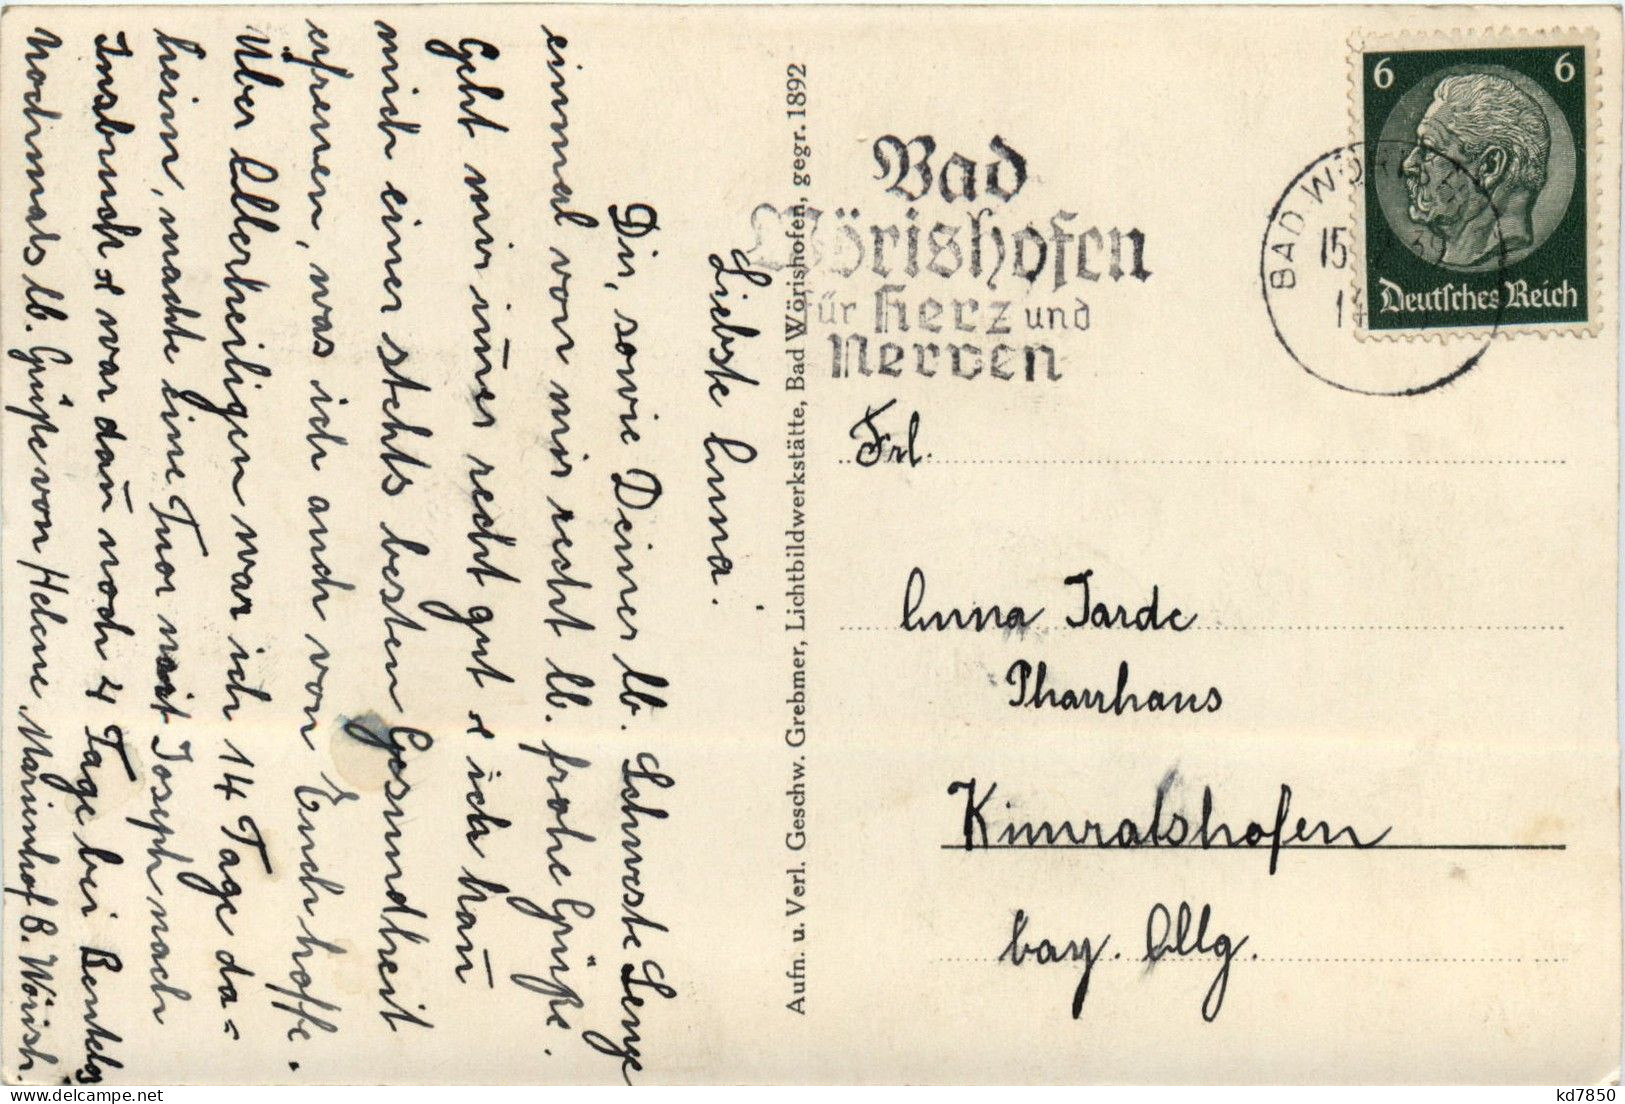 Liebste Anna.
Dir, sowie Deiner lb. Schwester
einmal von mir recht lb. frohe Grüße.
Geht mir im̄er recht gut & ich kan̄
mich einer stehts besten Gesundheit
erfreuen, was ich auch von Euch hoffe.
Über Allerheiligen war ich 14 Tage da=
heim, machte eine Tour mit Joseph nach
Insbruck & war dan̄ noch 4 Tage bei
Nochmals lb. Grüße von Helene, Marienhof B. Wörish.
Aufn. u. Verl. Geschw. Grebmer, Lichtbildwerkstätte, Bad Wörishofen, gegr. 1892
Bad
Wörishofen
für Herz und
Nerven
BAD WÖRISHOFEN
15
39
14
6 6
Deutsches Reich
Frl.
Anna Jarde
Pharrhaus
Kimratshofen
bay. Allg.
kd7850